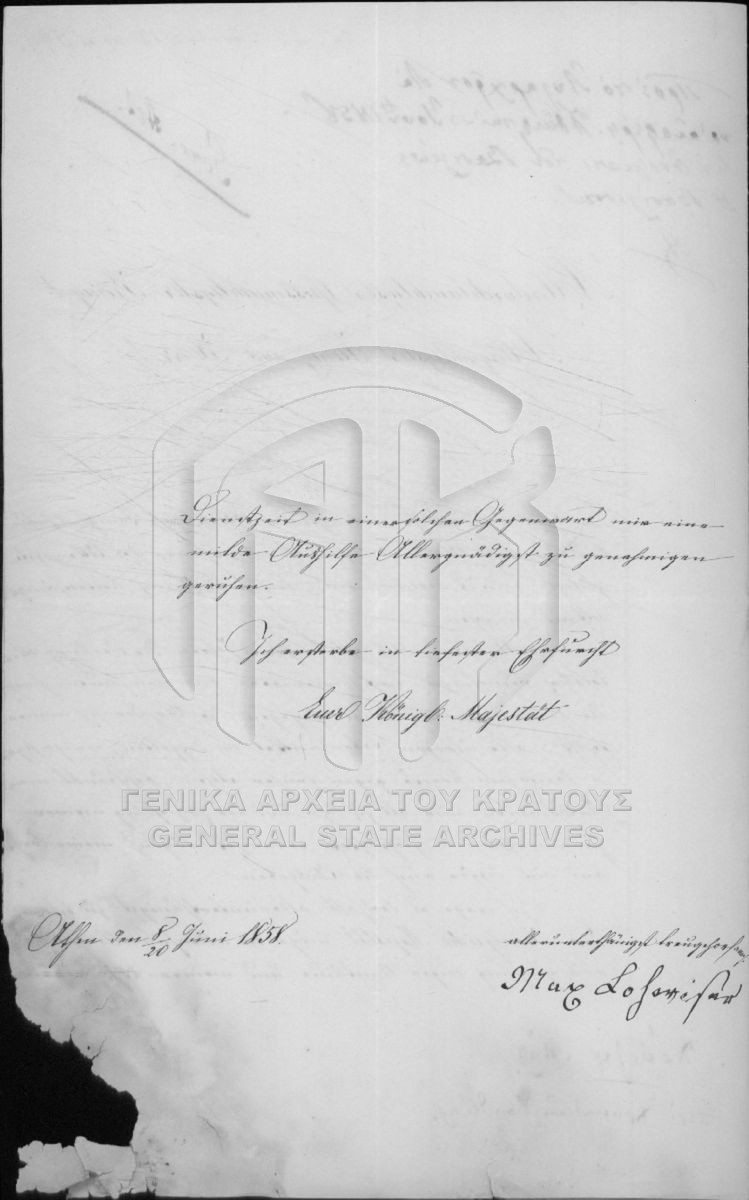 Dienstzeit in einer solchen Gegenwart mir eine
milde Aushilfe Allergnädigst zu genehmigen
geruhen.
Ich ersterbe in tiefester Ehrfurcht
Euer Königl: Majestät
ΓΕΝΙΚΑ ΑΡΧΕΙΑ ΤΟΥ ΚΡΑΤΟΥΣ
GENERAL STATE ARCHIVES
Athen den 8/20 Juni 1858.
allerunterthänigst treugehorsamst
Max